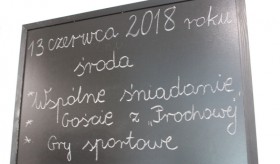 13 czerwca 2018 roku
środa
* Wspólne śniadanie
* Goście z „Prochowej"
* Gry sportowe